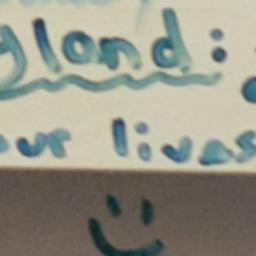 yland:
our lives